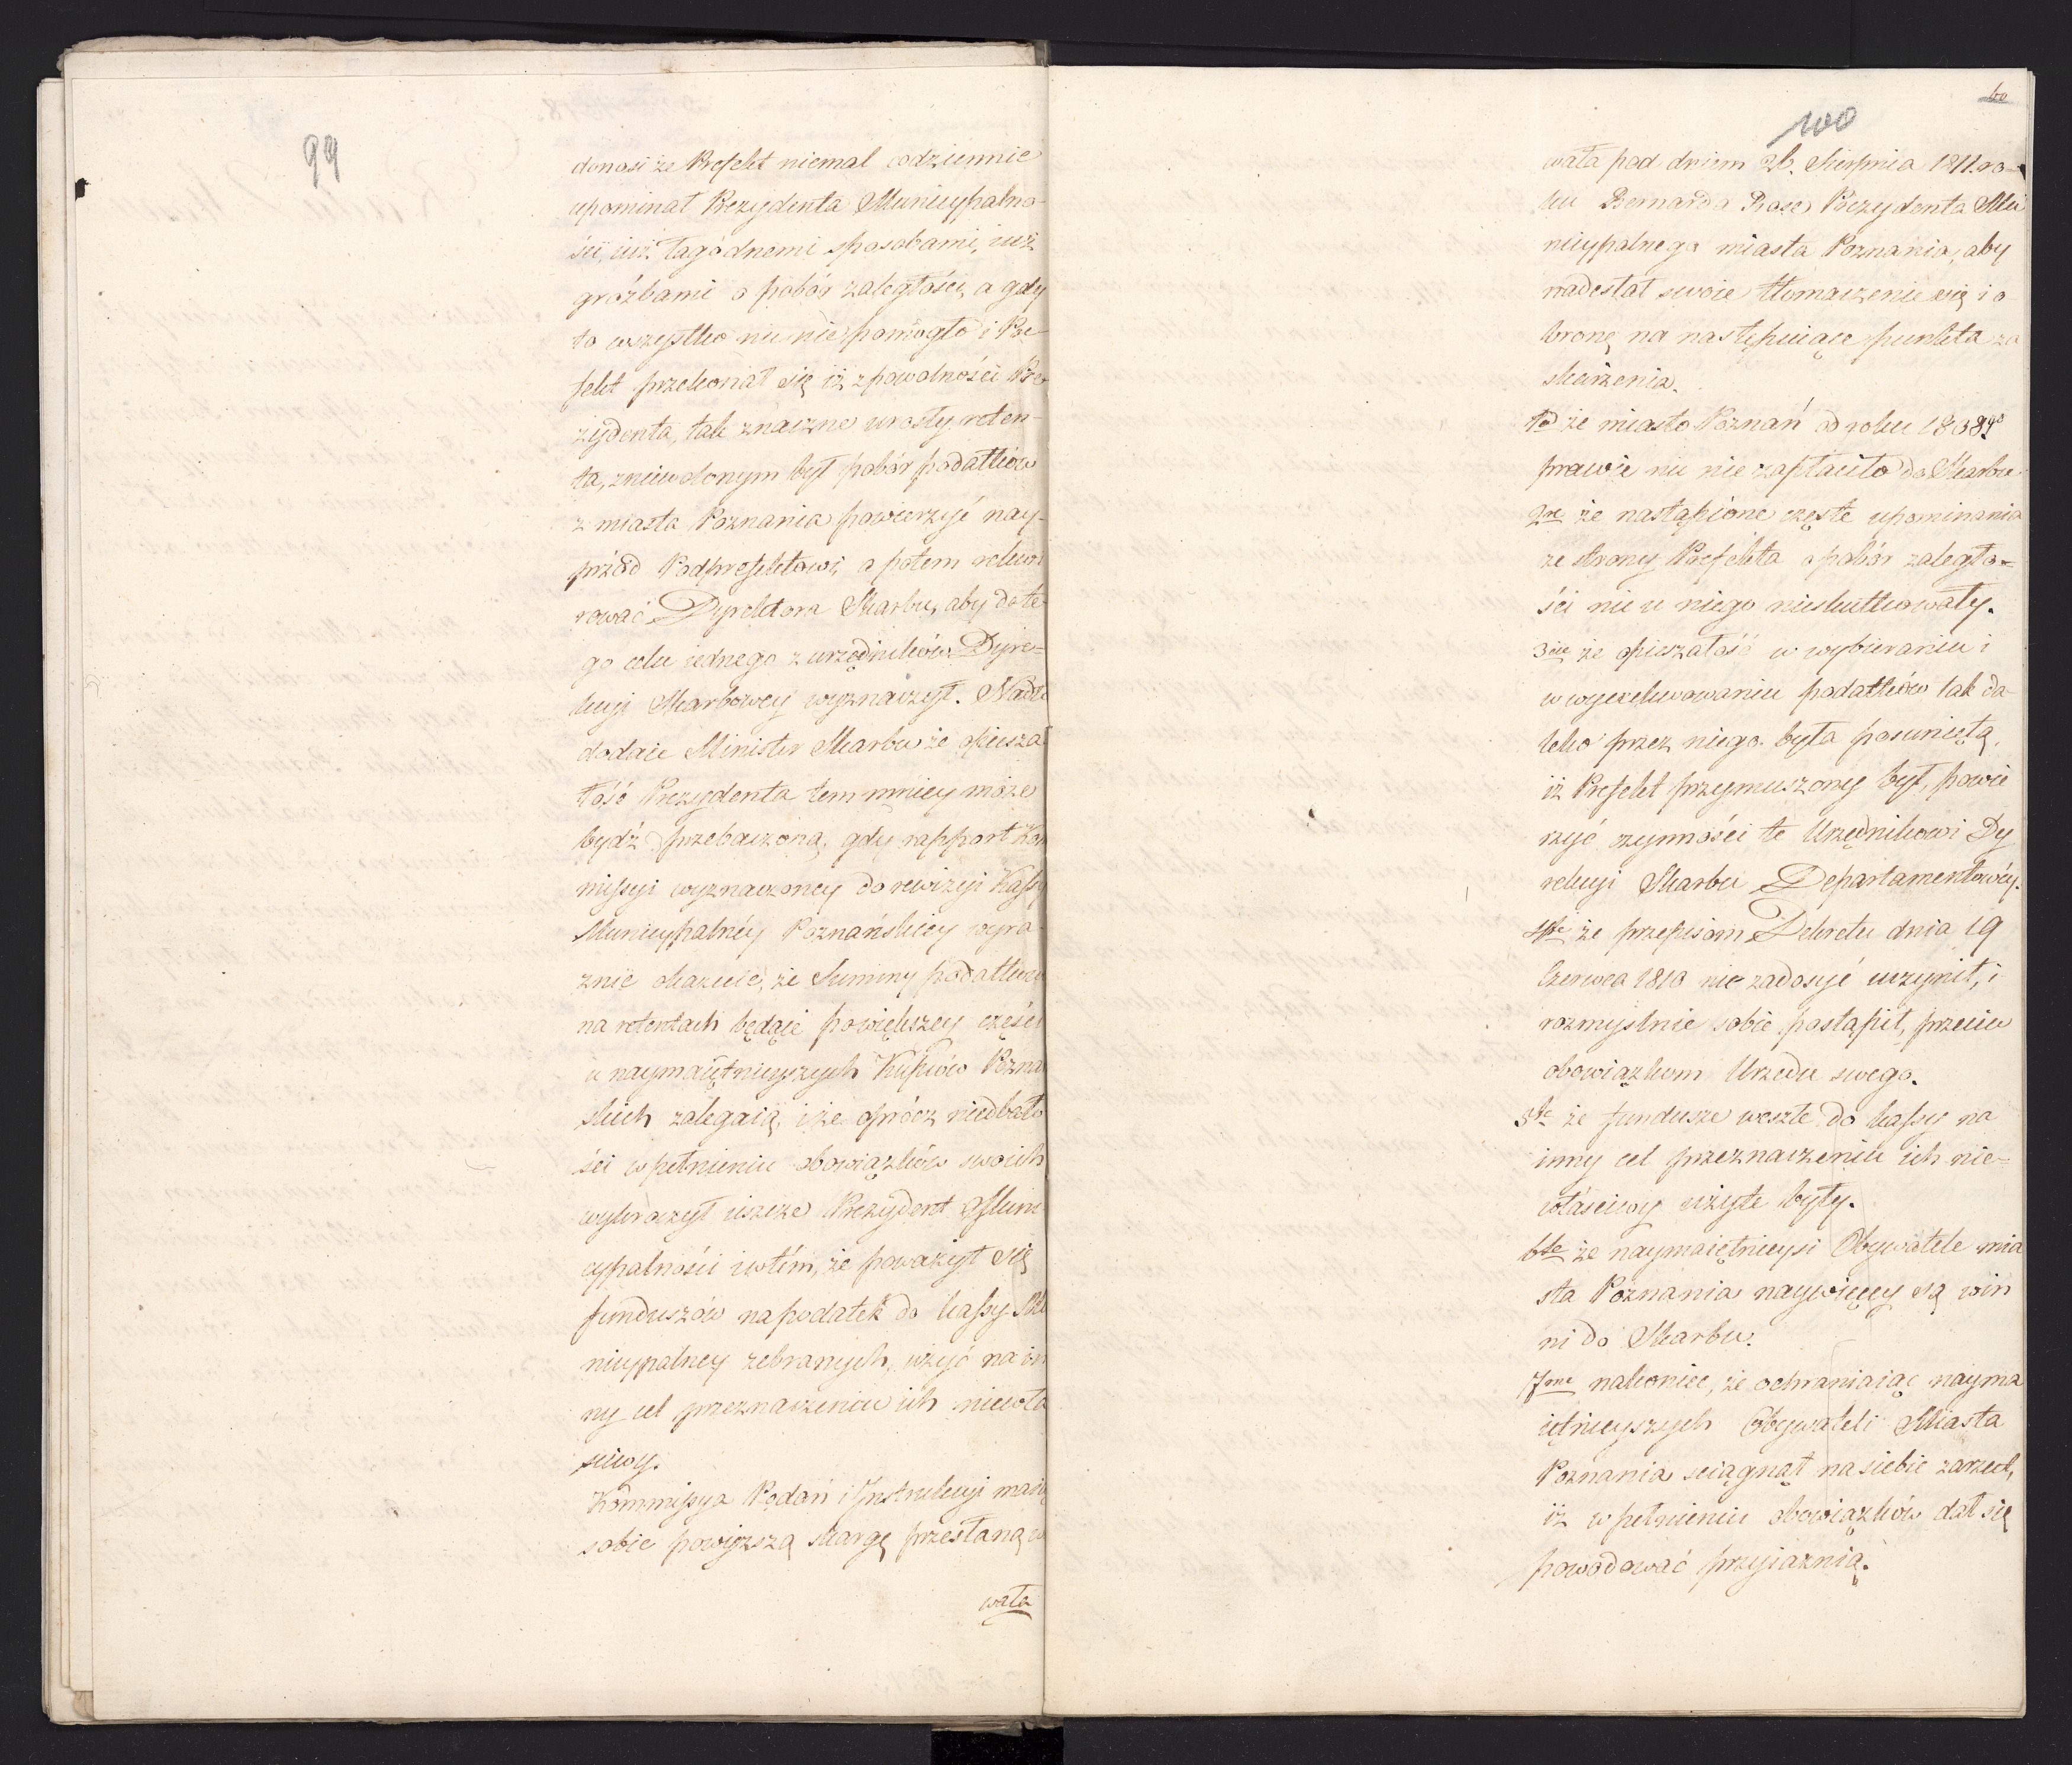 99
donosi że Prefekt niemal codziennie
upominał Prezydenta Municypalno-
ści, iuż łagodnemi sposobami, iuż
groźbami o pobór zaległości, a gdy
to wszystko nic nie pomogło i Pre-
fekt przekonał się iż z powolności Pre
zydenta, tak znaczne urosły reten-
ta, zniewolonym był pobór podatków
z miasta Poznania powierzyć nay-
przód Podprefektowi, a potem rekwi
rować Dyrektora Skarbu, aby do te
go celu iednego z urzędników Dyre-
kcyi Skarbowey wyznaczył. Nadto
dodaie Minister Skarbu że opiesza
łość Prezydenta tem mniey może
bydź przebaczoną, gdy rapport Kom
missyi wyznaczoney do rewizyi Kassy
Municypalnéy Poznańskiey wyra
znie okazuie, że Summy podatkowe
na retentach będące powiększey części
u naymaiętnieyszych Kupców Pozna
skich zalegaią, i że oprócz niedbało
ści w pełnieniu obowiązków swoich
wykroczył ieszcze Prezydent Muni
cypalności i w tém, że poważył się
funduszów na podatek do kassy Mu
nicypalney zebranych, użyć na in
ny cel przeznaczeniu ich niewła
sciwy.
Kommissya Podań i Instrukcyi maiąc
sobie powyższą skargę przesłaną w
wała
60
100
wała pod dniem 26. Sierpnia 1811. ro-
ku Bernarda Rose Prezydenta Mu
nicypalnego miasta Poznania, aby
nadesłał swoie tłomaczenie się i o
bronę na następuiące punkta za
skarżenia.
1o że miasto Poznań od roku 1808go
prawie nic nie zapłaciło do Skarbu
2re że nastąpione częste upominania
ze strony Prefekta o pobór zaległo=
ści nic u niego nieskutkowały.
3cie że opieszałość w wybieraniu i
w wyexekwowaniu podatków tak da
leko przez niego była posuniętą,
iż Prefekt przymuszony był, powie
rzyć czynności te Urzędnikowi Dy
rekcyi Skarbu Departamentowéy.
4te że przepisom Dekretu dnia 19
Czerwca 1810 nie zadosyć uczynił, i
rozmyślnie sobie postąpił, przeciw
obowiązkom Urzędu swego.
5te że fundusze weszłe do kassy na
inny cel przeznaczeniu ich nie=
właściwy użyte były.
6te że naymaiętnieysi Obywatele mia
sta Poznania naywięcey są win
ni do Skarbu.
7me nakoniec, że ochraniaiąc nayma
iętnieyszych Obywateli Miasta
Poznania sciągnął na siebie zarzut,
iż w pełnieniu obowiązków dał się
powodować przyiaznią.